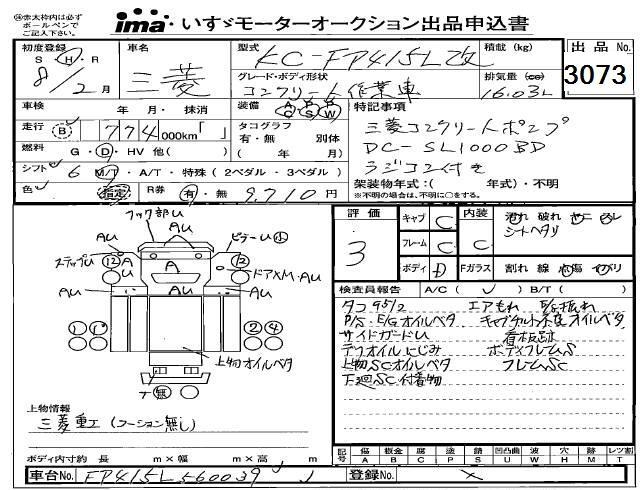 ※赤太枠内は必ず
ボールペンで
ご記入下さい。
ima・いすゞモーターオークション出品申込書
初度登録 S・H・R 8/2月
車名 三菱
型式 KC-FP415L改
積載 (kg)
出品No. 3073
グレード・ボディ形状 コンクリート作業車
排気量 (cc) 16.03L
車検 年 月・抹消
装備 A/C P/S P/W
特記事項
走行 B 774,000km「 」
タコグラフ 有・無 別体 ( 年 月)
三菱コンクリートポンプ
DC-SL1000BD
ラジコン付き
燃料 G・D・HV 他( )
シフト 6 M/T・A/T・特殊(2ペダル・3ペダル)
架装物年式:( 年式)・不明
※不明の場合は、不明に○をする。
色 指定 R券 有・無 9,710円
フック部U
AU
AU AU
ステップU
ビラーU 小
12 A
A
12
ドアXM・AU
AU AU AU
1 1
2 4
上物オイルベタ
T 無
評価 3
キャブ C
フレーム C
ボディ D
内装 C
汚れ 破れ ヤニ スレ
シートヘタリ
Fガラス 割れ 線 点傷 イバリ
検査員報告 A/C( ✓ ) B/T( )
タコ95/2 エアもれ E/g振れ
P/S・E/Gオイルベタ
サイドガードU 看板跡
デフオイルにじみ ボディフレームS
上物SCオイルベタ フレームSC
下廻SC付着物
上物情報
三菱重工 (クーション無し)
ボディ内寸約 長 m×幅 m×高 m
記号 傷A 板金B 腐C 塗P 錆S 凹凸曲U 波W 穴H 跡M 欠T レツ割
車台No. FP415L560039
登録No. ×